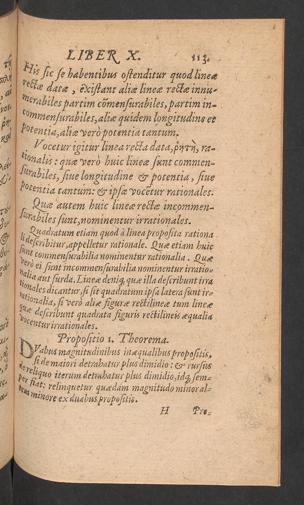 LIBER X. 113.
His sic se habentibus ostenditur quod lineæ
rectæ datæ, existant aliæ lineæ rectæ innu-
merabiles partim cõmensurabiles, partim in-
commensurabiles, aliæ quidem longitudine et
potentia, aliæ verò potentia tantum.
Vocetur igitur linea recta data, ῥητὴ, ra-
tionalis: quæ verò huic lineæ sunt commen-
surabiles, siue longitudine & potentia, siue
potentia tantum: & ipsæ vocetur rationales.
Quæ autem huic lineæ rectæ incommen-
surabiles sunt, nominentur irrationales.
Quadratum etiam quod à linea proposita rationa
li describitur, appelletur rationale. Quæ etiam huic
sunt commensurabilia nominentur rationalia. Quæ
verò ei sunt incommensurabilia nominentur irratio-
nalia aut surda. Lineæ deniq; quæ illa describunt irra
tionales dicantur, si sit quadratum ipsa latera sunt ir-
rationalia, si verò aliæ figuræ rectilineæ tum lineæ
quæ describunt quadrata figuris rectilineis æqualia
vocentur irrationales.
Propositio 1. Theorema.
DVabus magnitudinibus inæqualibus propositis,
si de maiori detrahatur plus dimidio: & rursus
de reliquo iterum detrahatur plus dimidio, idq; sem-
per fiat: relinquetur quædam magnitudo minor al-
tera minore ex duabus propositis.
H Pro-